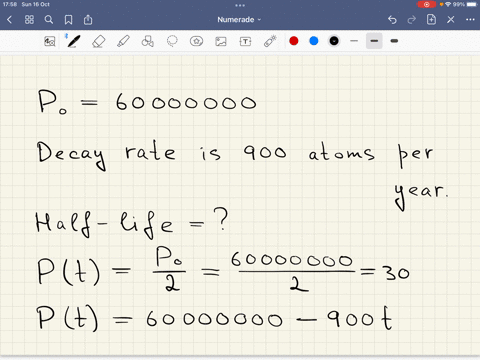 17:58 Sun 16 Oct
99%
Numerade
P₀ = 60000000
Decay rate is 900 atoms per
year.
Half-life = ?
P(t) = P₀/2 = 60000000/2 = 30
P(t) = 60000000 - 900t